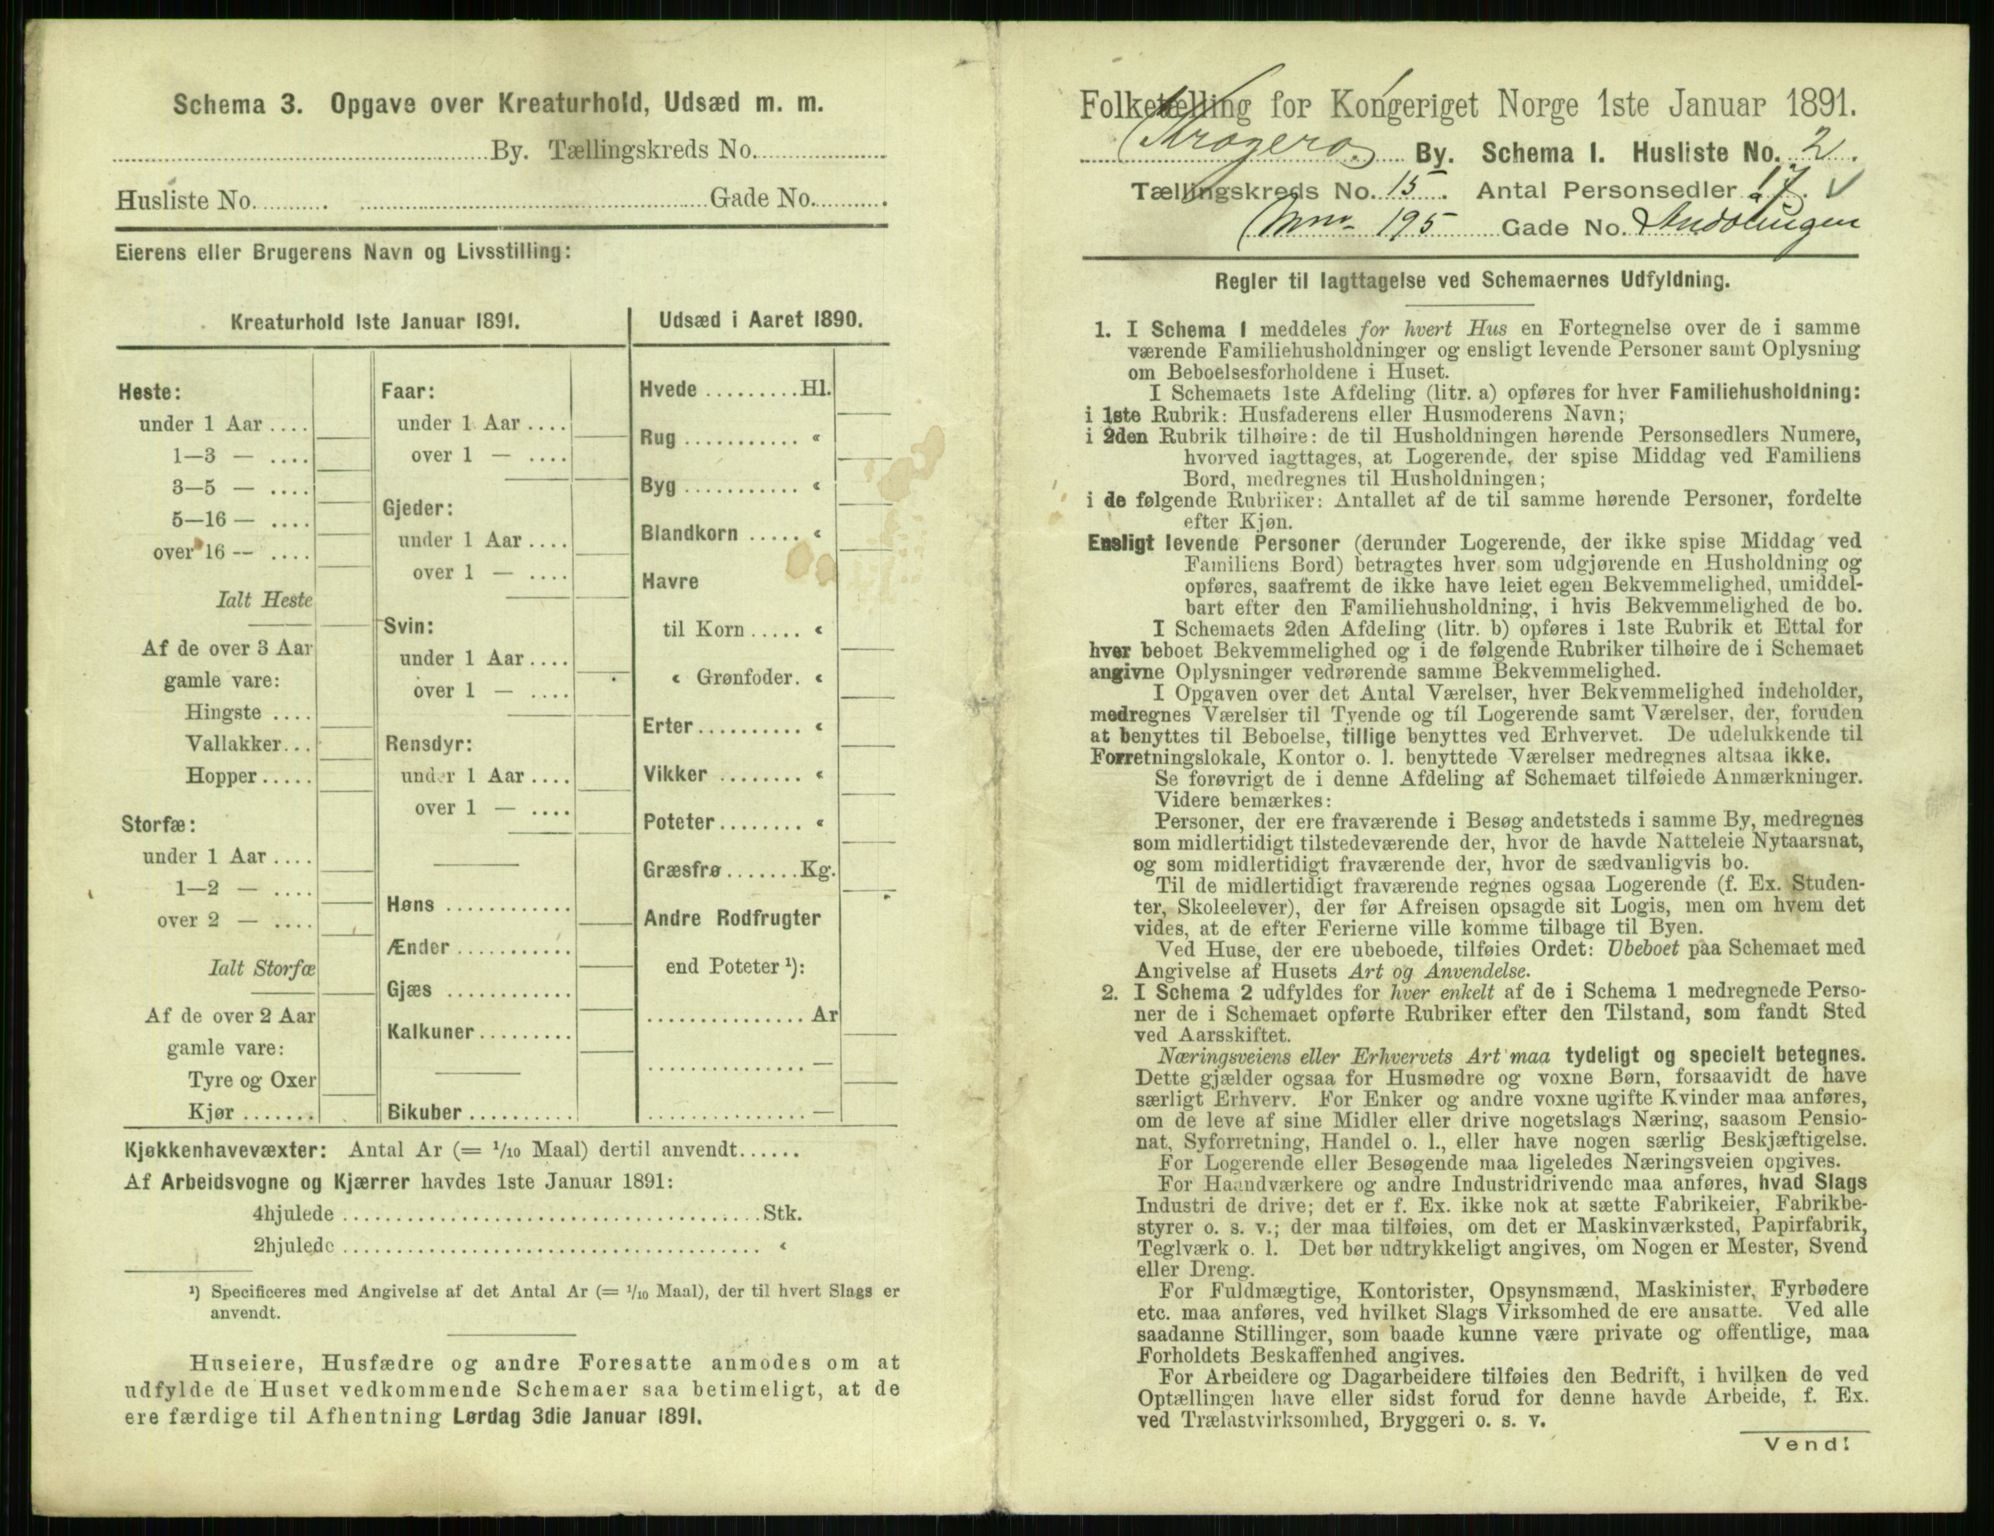 Schema 3. Opgave over Kreaturhold, Udsæd m. m.
By. Tællingskreds No.
Husliste No. Gade No.
Eierens eller Brugerens Navn og Livsstilling:
Kreaturhold 1ste Januar 1891.
Heste:
under 1 Aar
1—3 —
3—5 —
5—16 —
over 16 —
Ialt Heste
Af de over 3 Aar
gamle vare:
Hingste
Vallakker
Hopper
Storfæ:
under 1 Aar
1—2 —
over 2 —
Ialt Storfæ
Af de over 2 Aar
gamle vare:
Tyre og Oxer
Kjør
Faar:
under 1 Aar
over 1 —
Gjeder:
under 1 Aar
over 1 —
Svin:
under 1 Aar
over 1 —
Rensdyr:
under 1 Aar
over 1 —
Høns
Ænder
Gjæs
Kalkuner
Bikuber
Udsæd i Aaret 1890.
Hvede Hl.
Rug «
Byg «
Blandkorn «
Havre
til Korn «
« Grønfoder. «
Erter «
Vikker «
Poteter «
Græsfrø Kg.
Andre Rodfrugter
end Poteter ¹):
Ar
—
—
Kjøkkenhavevæxter: Antal Ar (= 1/10 Maal) dertil anvendt
Af Arbeidsvogne og Kjærrer havdes 1ste Januar 1891:
4hjulede Stk.
2hjulede «
¹) Specificeres med Angivelse af det Antal Ar (= 1/10 Maal), der til hvert Slags er
anvendt.
Huseiere, Husfædre og andre Foresatte anmodes om at
udfylde de Huset vedkommende Schemaer saa betimeligt, at de
ere færdige til Afhentning Lørdag 3die Januar 1891.
Folketælling for Kongeriget Norge 1ste Januar 1891.
Kragerø By. Schema I. Husliste No. 2.
Tællingskreds No. 15. Antal Personsedler 17.
195 Gade No.
Regler til Iagttagelse ved Schemaernes Udfyldning.
1. I Schema 1 meddeles for hvert Hus en Fortegnelse over de i samme
værende Familiehusholdninger og ensligt levende Personer samt Oplysning
om Beboelsesforholdene i Huset.
I Schemaets 1ste Afdeling (litr. a) opføres for hver Familiehusholdning:
i 1ste Rubrik: Husfaderens eller Husmoderens Navn;
i 2den Rubrik tilhøire: de til Husholdningen hørende Personsedlers Numere,
hvorved iagttages, at Logerende, der spise Middag ved Familiens
Bord, medregnes til Husholdningen;
i de følgende Rubriker: Antallet af de til samme hørende Personer, fordelte
efter Kjøn.
Ensligt levende Personer (derunder Logerende, der ikke spise Middag ved
Familiens Bord) betragtes hver som udgjørende en Husholdning og
opføres, saafremt de ikke have leiet egen Bekvemmelighed, umiddel-
bart efter den Familiehusholdning, i hvis Bekvemmelighed de bo.
I Schemaets 2den Afdeling (litr. b) opføres i 1ste Rubrik et Ettal for
hver beboet Bekvemmelighed og i de følgende Rubriker tilhøire de i Schemaet
angivne Oplysninger vedrørende samme Bekvemmelighed.
I Opgaven over det Antal Værelser, hver Bekvemmelighed indeholder,
medregnes Værelser til Tyende og til Logerende samt Værelser, der, foruden
at benyttes til Beboelse, tillige benyttes ved Erhvervet. De udelukkende til
Forretningslokale, Kontor o. l. benyttede Værelser medregnes altsaa ikke.
Se forøvrigt de i denne Afdeling af Schemaet tilføiede Anmærkninger.
Videre bemærkes:
Personer, der ere fraværende i Besøg andetsteds i samme By, medregnes
som midlertidigt tilstedeværende der, hvor de havde Natteleie Nytaarsnat,
og som midlertidigt fraværende der, hvor de sædvanligvis bo.
Til de midlertidigt fraværende regnes ogsaa Logerende (f. Ex. Studen-
ter, Skoleelever), der før Afreisen opsagde sit Logis, men om hvem det
vides, at de efter Ferierne ville komme tilbage til Byen.
Ved Huse, der ere ubeboede, tilføies Ordet: Ubeboet paa Schemaet med
Angivelse af Husets Art og Anvendelse.
2. I Schema 2 udfyldes for hver enkelt af de i Schema 1 medregnede Perso-
ner de i Schemaet opførte Rubriker efter den Tilstand, som fandt Sted
ved Aarsskiftet.
Næringsveiens eller Erhvervets Art maa tydeligt og specielt betegnes.
Dette gjælder ogsaa for Husmødre og voxne Børn, forsaavidt de have
særligt Erhverv. For Enker og andre voxne ugifte Kvinder maa anføres,
om de leve af sine Midler eller drive nogetslags Næring, saasom Pensio-
nat, Syforretning, Handel o. l., eller have nogen særlig Beskjæftigelse.
For Logerende eller Besøgende maa ligeledes Næringsveien opgives.
For Haandværkere og andre Industridrivende maa anføres, hvad Slags
Industri de drive; det er f. Ex. ikke nok at sætte Fabrikeier, Fabrikbe-
styrer o. s. v.; der maa tilføies, om det er Maskinværksted, Papirfabrik,
Teglværk o. l. Det bør udtrykkeligt angives, om Nogen er Mester, Svend
eller Dreng.
For Fuldmægtige, Kontorister, Opsynsmænd, Maskinister, Fyrbødere
etc. maa anføres, ved hvilket Slags Virksomhed de ere ansatte. Ved alle
saadanne Stillinger, som baade kunne være private og offentlige, maa
Forholdets Beskaffenhed angives.
For Arbeidere og Dagarbeidere tilføies den Bedrift, i hvilken de ved
Optællingen have eller sidst forud for denne havde Arbeide, f. Ex.
ved Trælastvirksomhed, Bryggeri o. s. v.
Vend!